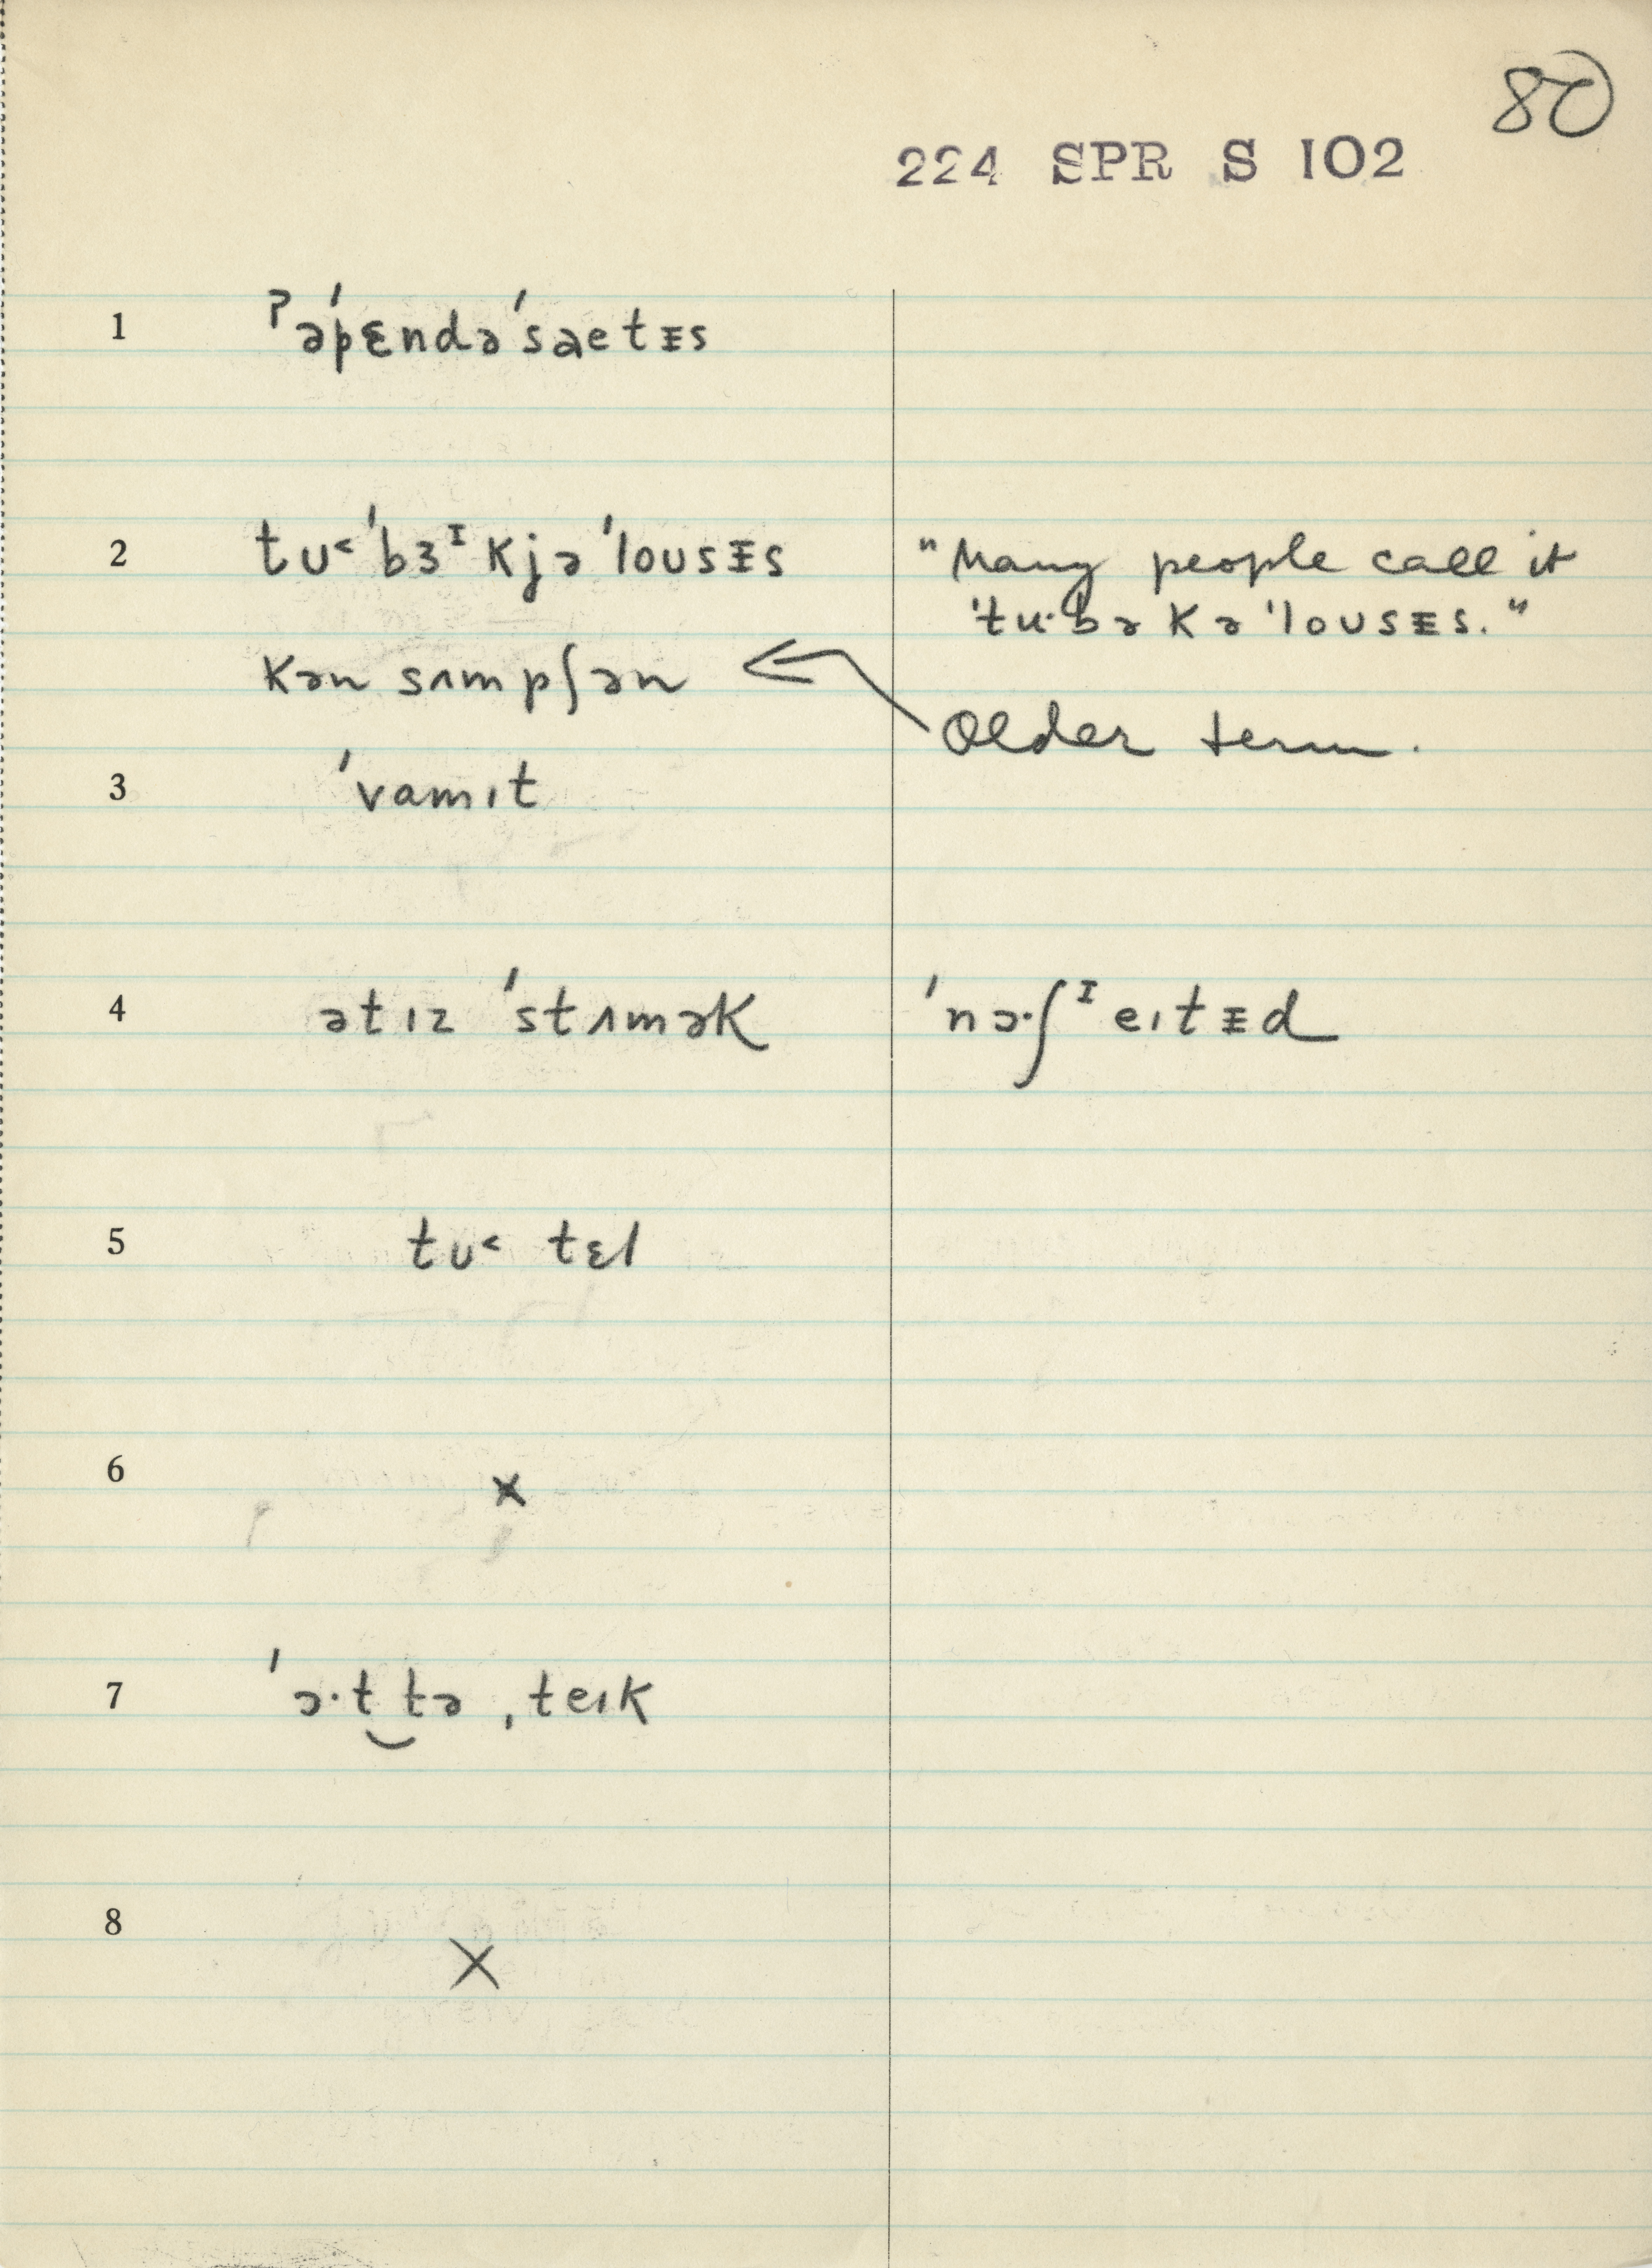 80
224 SPR S 102
1 ˀəˈpɛndəˈsaetɪ̵s
2 tʊ˂ˈbɜᶦkjəˈloʊsɪ̵s "Many people call it
ˈtu·bəkəˈloʊsɪ̵s."
kənsʌmpʃən ←
Older term.
3 ˈvamɪt
4 ətɪz ˈstʌmək ˈnɔ·ʃᶦeɪtɪ̵d
5 tʊ˂ tɛl
6 x
7 ˈɔ·t‿tə ˌteɪk
8 X